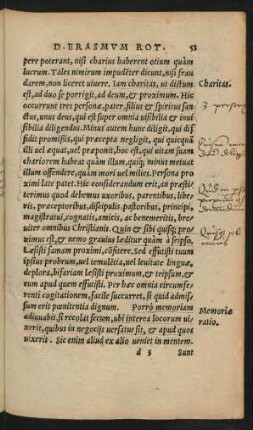 D. ERASMVM ROT. 53
pere poterant, nisi charius haberent otium quàm
lucrum. Tales nimirum impudēter dicunt, nisi frau
darem, non liceret viuere. Iam charitas, ut dictum Charitas.
est, ad duo se porrigit, ad deum, & proximum. Hic
occurrunt tres personæ, pater, filius & spiritus san 3. person
ctus, unus deus, qui est super omnia uisibilia & inui
sibilia diligendus. Minus autem hunc diligit, qui dif
fidit promissis, qui præcepta negligit, qui quicquā
illi uel æquat, uel præponit, hoc est, qui uitam suam
chariorem habeat quàm illum, quiq; minus metuat
illum offendere, quàm mori uel milies. Persona pro
ximi late patet. Hic considerandum erit, tu præsti/
terimus quod debemus uxoribus, parentibus, libe/
ris, præceptoribus, discipulis. patronibus, principi,
magistratui, cognatis, amicis, ac benemeritis, bre/
uiter omnibus Christianis. Quin & sibi quisq; pro/
ximus est, & nemo grauius læditur quàm à seipso.
Læsisti famam proximi, cōfitere. Sed effutisti tuum
ipsius probrum, uel temulētia, uel leuitate linguæ,
deplora, bifariam læsisti proximum, & teipsum, &
eum apud quem effutisti. Per hæc omnia circumse/
renti cogitationem, facile succurret, si quid admis/
sum erit pœnitentia dignum. Porrò memoriam Memoriæ
adiuuabit, si recolat secum, ubi interea locorum ui ratio.
xerit, quibus in negocijs uersatus sit, & apud quos
uixerit. Sic enim aliud ex alio ueniet in mentem.
d 5 Sunt